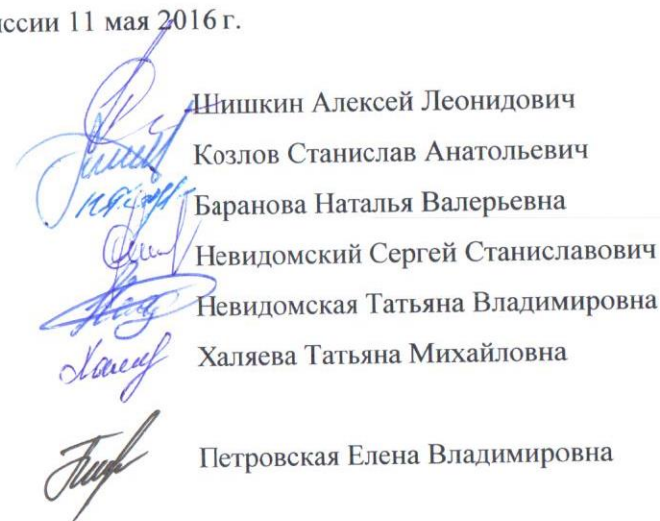 ссии 11 мая 2016 г.
Шишкин Алексей Леонидович
Козлов Станислав Анатольевич
Баранова Наталья Валерьевна
Невидомский Сергей Станиславович
Невидомская Татьяна Владимировна
Халяева Татьяна Михайловна
Петровская Елена Владимировна